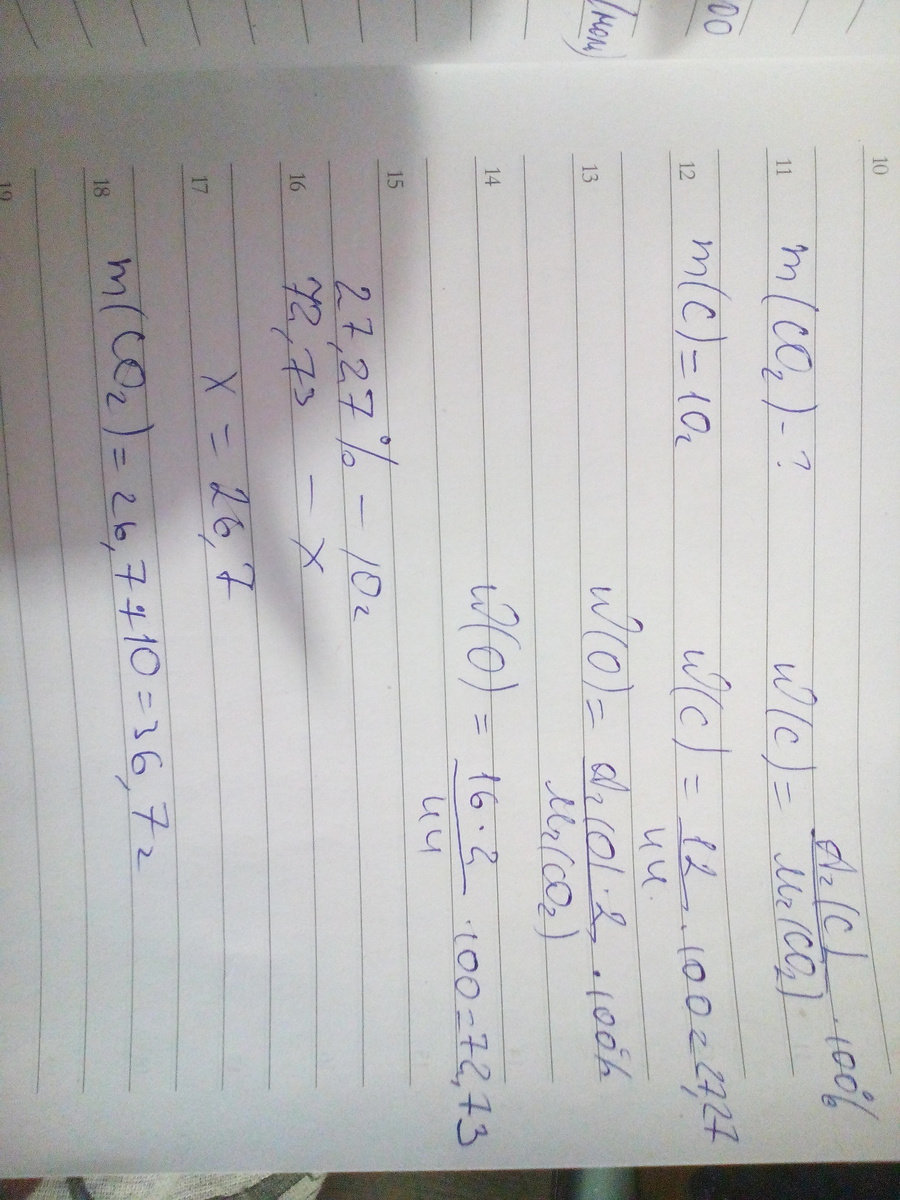 00
(мол)
10
Ar(C)
11 m(CO₂) - ? W(C) = Mr(CO₂) · 100%
12 m(C) = 10г W(C) = 12/44 · 100 = 27,27
13 W(O) = Ar(O)·2/Mr(CO₂) · 100%
14 W(O) = 16·2/44 · 100 = 72,73
15
27,27% — 10г
16 72,73 — x
17 x = 26,7
18 m(CO₂) = 26,7 + 10 = 36,7г
19